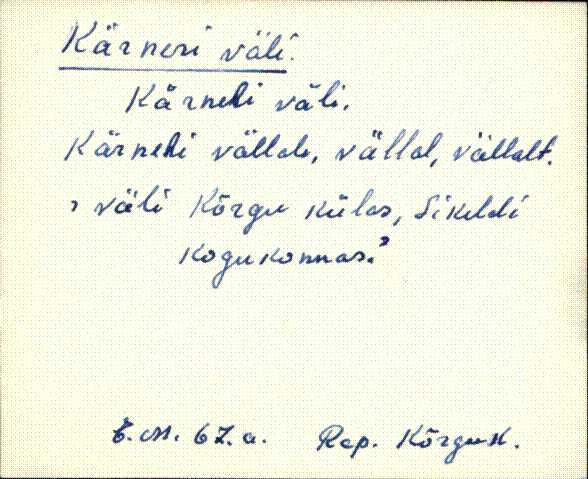 Kärneri väli.
Kärneri väli.
Kärneri vällale, vällal, vällalt.
, väli Kõrgu külas, Sikeldi
kogukonnas.ˀ
E. M. 67. a. Rep. Kõrgus.